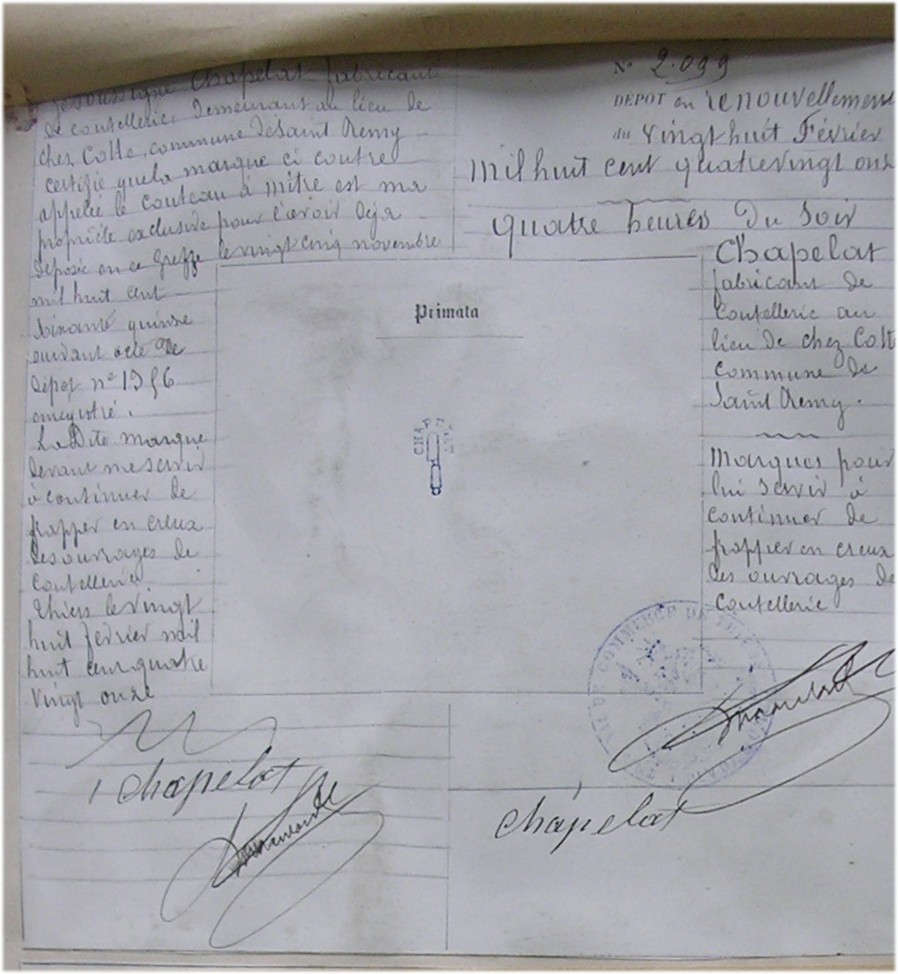 Je soussigné Chapelat fabricant
de coutellerie, Demeurant au lieu de
chez Cotte, commune de Saint Remy
certifie que la marque ci contre
appelée le couteau à mitre est ma
propriété exclusive pour l'avoir déja
déposée en ce Greffe le vingt cinq novembre
mil huit cent
soixante quinze
suivant acte de
dépôt n°
enregistré.
La Dite marque
devant me servir
à continuer de
frapper en creux
des ouvrages de
coutellerie
Thiers le vingt
huit février mil
huit cent quatre
vingt onze
Chapelat
N° 2.099
DÉPOT en renouvellement
du Vingt huit Février
Mil huit cent quatre vingt onze
quatre heures du soir
Chapelat
fabricant de
Coutellerie au
lieu de chez Cotte
commune de
Saint Remy.
Marques pour
lui servir à
continuer de
frapper en creux
des ouvrages de
coutellerie
Primata
CHAPELAT
DE COMMERCE DE
Chapelat